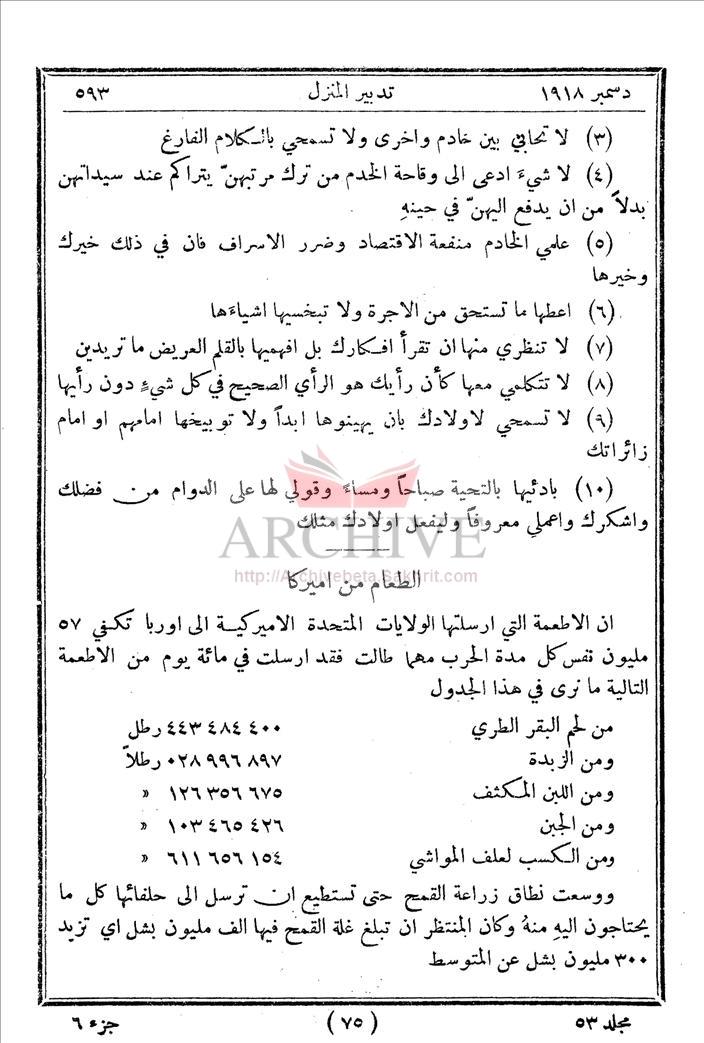 دسمبر ١٩١٨ تدبير المنزل ٥٩٣
(٣) لا تحابي بين خادم واخرى ولا تسمحي بالكلام الفارغ
(٤) لا شيءَ ادعى الى وقاحة الخدم من ترك مرتبهنّ يتراكم عند سيداتهن
بدلاً من ان يدفع اليهنّ في حينهِ
(٥) علمي الخادم منفعة الاقتصاد وضرر الاسراف فان في ذلك خيرك
وخيرها
(٦) اعطها ما تستحق من الاجرة ولا تبخسيها اشياءَها
(٧) لا تنظري منها ان تقرأ افكارك بل افهميها بالقلم العريض ما تريدين
(٨) لا تتكلمي معها كأن رأيك هو الرأي الصحيح في كل شيءٍ دون رأيها
(٩) لا تسمحي لاولادك بان يهينوها ابداً ولا توبيخها امامهم او امام
زائراتك
(١٠) بادئيها بالتحية صباحاً ومساءً وقولي لها على الدوام من فضلك
واشكرك واعملي معروفاً وليفعل اولادك مثلك
ARCHIVE
http://Archivebeta.Sakhrit.com
الطعام من اميركا
ان الاطعمة التي ارسلتها الولايات المتحدة الاميركية الى اوربا تكفي ٥٧
مليون نفس كل مدة الحرب مهما طالت فقد ارسلت في مائة يوم من الاطعمة
التالية ما نرى في هذا الجدول
من لحم البقر الطري ٤٠٠ ٤٨٤ ٤٤٣ رطل
ومن الزبدة ٨٩٧ ٩٩٦ ٠٢٨ رطلاً
ومن اللبن المكثف ٦٧٥ ٣٥٦ ١٢٦ »
ومن الجبن ٤٢٦ ٤٦٥ ١٠٣ »
ومن الكسب لعلف المواشي ١٥٤ ٦٥٦ ٦١١ »
ووسعت نطاق زراعة القمح حتى تستطيع ان ترسل الى حلفائها كل ما
يحتاجون اليهِ منهُ وكان المنتظر ان تبلغ غلة القمح فيها الف مليون بشل اي تزيد
٣٠٠ مليون بشل عن المتوسط
مجلد ٥٣ (٧٥) جزء ٦